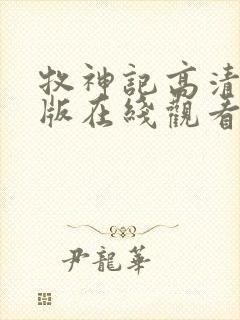 牧神記高清
版在綫觀看
尹龍華